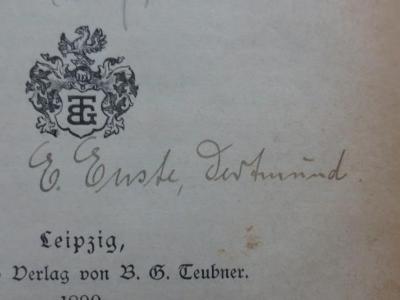 E. Enste, Dortmund.
Leipzig,
Verlag von B. G. Teubner.